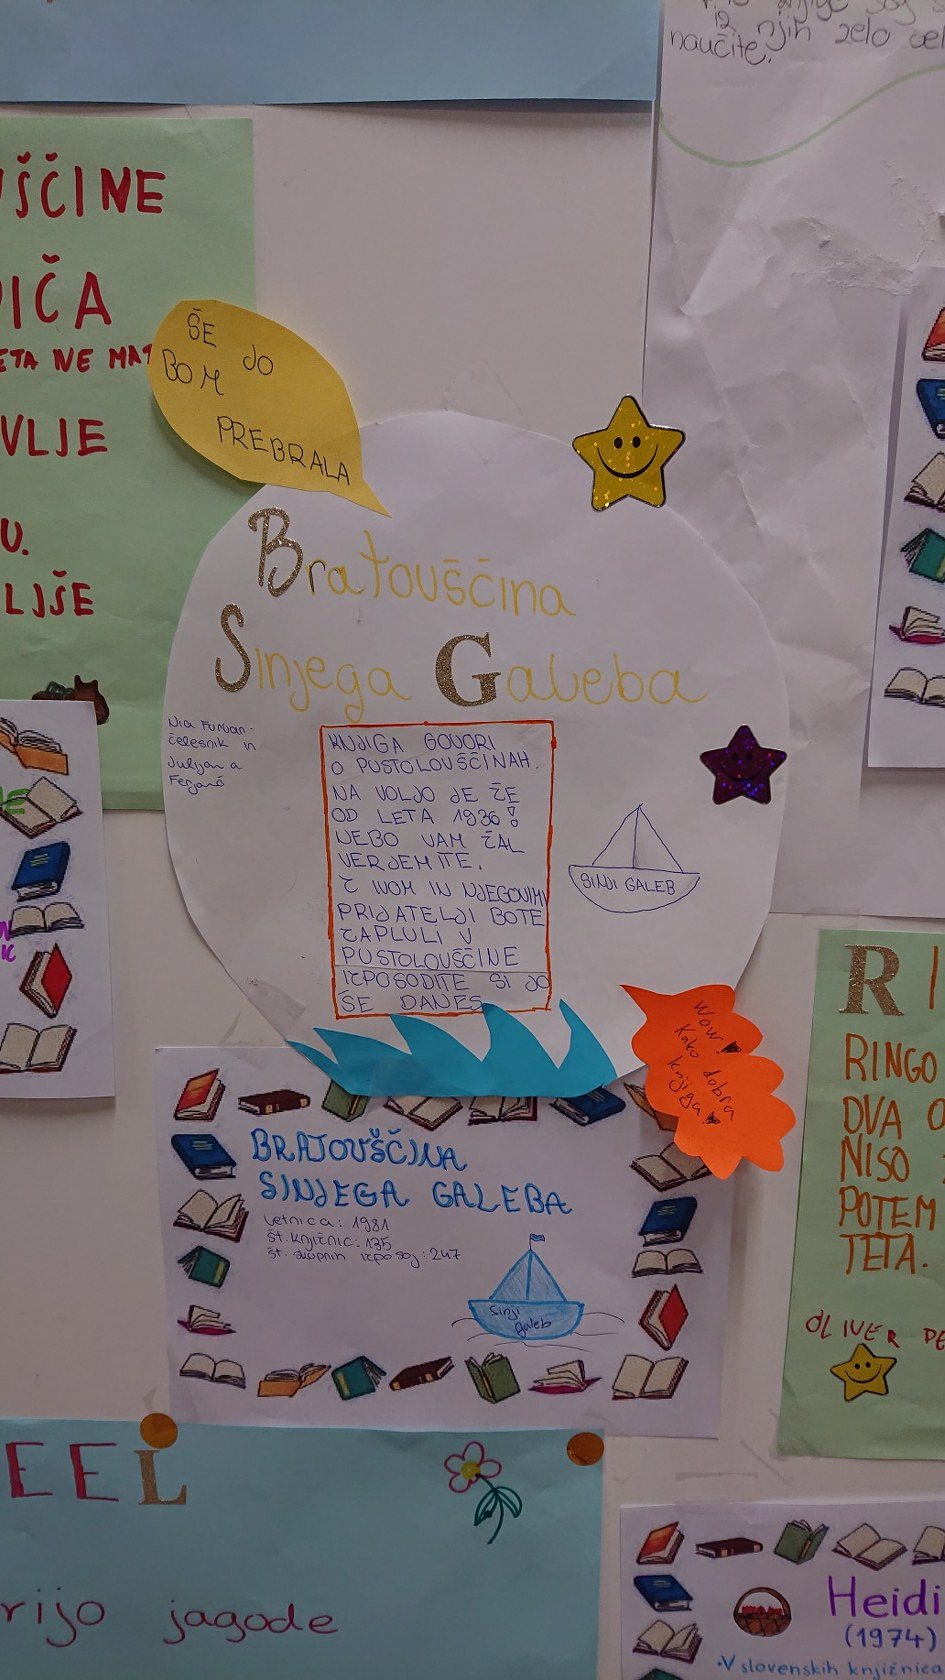 iz njih zelo
naučite.
ŠČINE
IČA
ETA NE MAT
VLJE
U.
LJŠE
ŠE JO
BOM
PREBRALA
Bratovščina
Sinjega Galeba
Nia Furlan-
čelesnik in
Julijana
KNJIGA GOVORI
O PUSTOLOVŠČINAH.
NA VOLJO JE ŽE
OD LETA 1936!
NEBO VAM ŽAL
VERJEMITE.
Z IVOM IN NJEGOVIMI
PRIJATELJI BOTE
ZAPLULI V
PUSTOLOVŠČINE
IZPOSODITE SI JO
ŠE DANES
SINJI GALEB
Wow!
Kako dobra
knjiga.
BRATOVŠČINA
SINJEGA GALEBA
letnica: 1981
št. knjižnic: 135
št. skupnih izposoj: 247
sinji
galeb
RI
RINGO
DVA
NISO
POTEM
TETA.
OLIVER PE
EEL
rijo jagode
Heidi
(1974)
•V slovenskih knjižnica